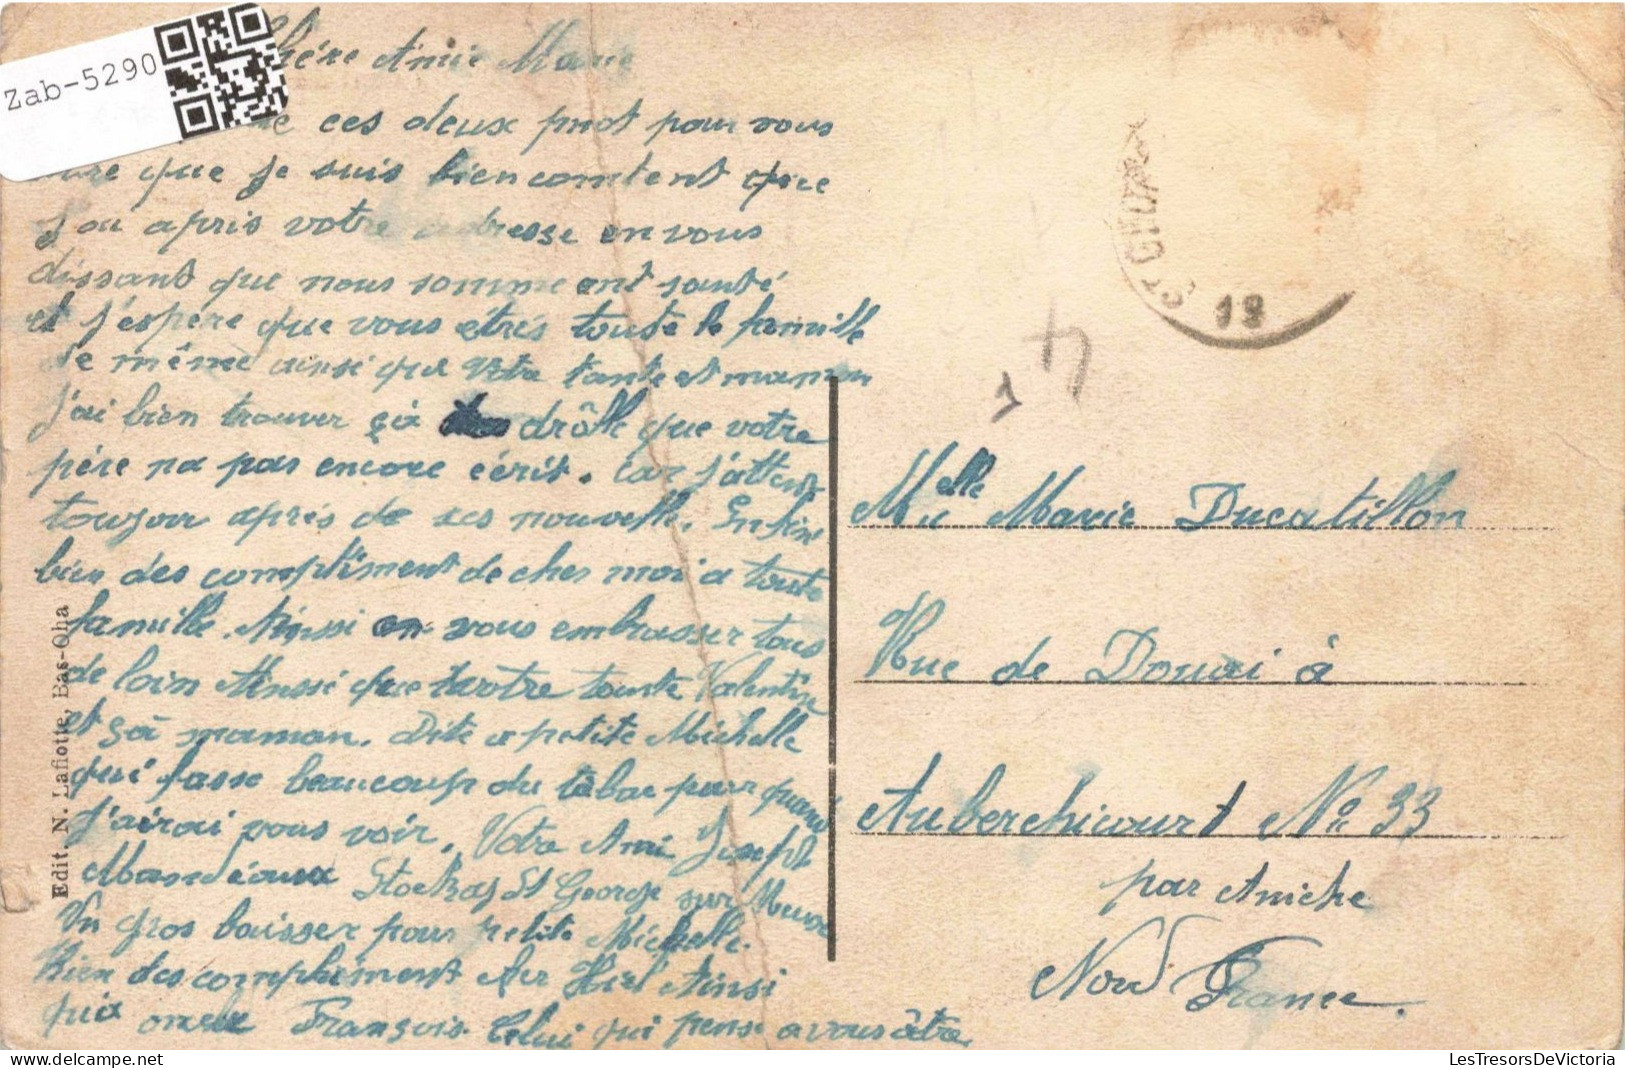 Zab-5290
Chére Amie Marie
ces deux mot pour vous
dire que je suis bien content que
j'ai apris votre adresse en vous
dissant que nous somme ent santé
et j'espére que vous étres toute le famille
de même ainsi que Votre tante et maman
j'ai bien trouver çà drôlle que votre
pére na pas encore écrit. car j'attent
toujour aprés de ses nouvelle. Enfin
bien des compliment de ches moi a toute
famille. Ainssi vous embrasser tous
de loin Ainssi que votre tante Valentine
et sà maman. Dite a petite Michelle
qui fasse beaucoup du tabac pour quand
j'airai vous voir. Votre Ami Joseph
St George sur Meuse
Un gros baisser pour petite Michelle.
Bien des compliment Ainsi
François. Celui qui pense a vous être
Edit. N. Laflotte, Bas-Oha
ST GEORGES
19
Melle Marie Ducatillon
Rue de Douai à
Auberchicourt No 33
par Aniche
Nord France.
LesTresorsDeVictoria
delcampe.net